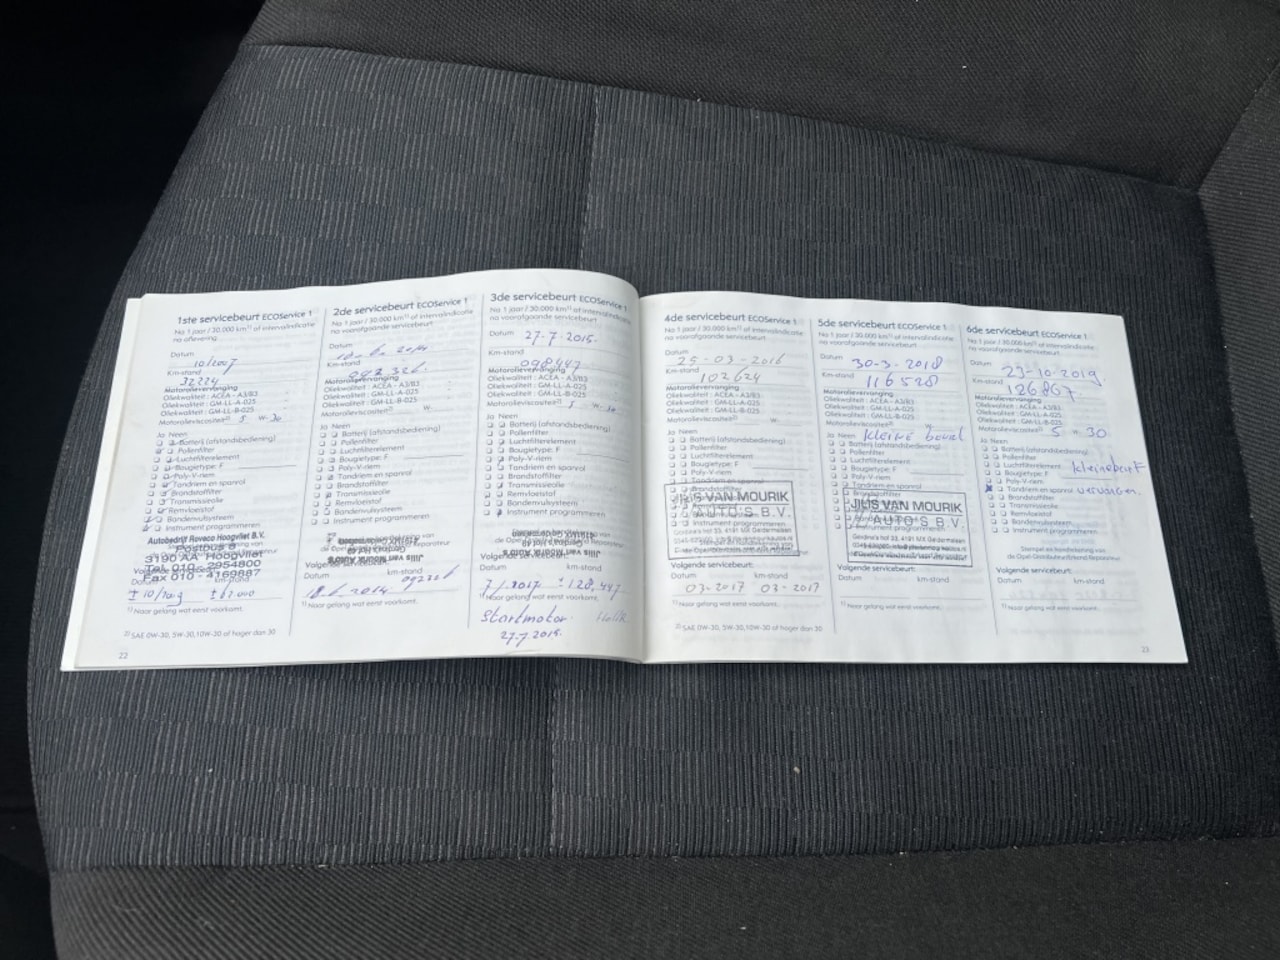 1ste servicebeurt ECOService 1
Na 1 jaar / 30.000 km¹⁾ of intervalindicatie
na aflevering
Datum
10/2007
Km-stand
32224
Motorolievervanging
Oliekwaliteit : ACEA - A3/B3
Oliekwaliteit : GM-LL-A-025
Oliekwaliteit : GM-LL-B-025
Motorolieviscositeit²⁾ 5 W- 30
Ja Neen
Batterij (afstandsbediening)
Pollenfilter
Luchtfilterelement
Bougietype: F
Poly-V-riem
Tandriem en spanrol
Brandstoffilter
Transmissieolie
Remvloeistof
Bandenvulsysteem
Instrument programmeren
Autobedrijf Roveco Hoogvliet B.V.
Postbus 8
3190 AA Hoogvliet
Tel. 010 - 2954800
Fax 010 - 4169887
Volgende servicebeurt:
km-stand
¹⁾ Naar gelang wat eerst voorkomt.
²⁾ SAE 0W-30, 5W-30, 10W-30 of hoger dan 30
22
2de servicebeurt ECOService 1
Na 1 jaar / 30.000 km¹⁾ of intervalindicatie
na voorafgaande servicebeurt
Datum
10.6.2014
Km-stand
092326.
Motorolievervanging
Oliekwaliteit : ACEA - A3/B3
Oliekwaliteit : GM-LL-A-025
Oliekwaliteit : GM-LL-B-025
Motorolieviscositeit²⁾ W-
Ja Neen
Batterij (afstandsbediening)
Pollenfilter
Luchtfilterelement
Bougietype: F
Poly-V-riem
Tandriem en spanrol
Brandstoffilter
Transmissieolie
Remvloeistof
Bandenvulsysteem
Instrument programmeren
Jilis van Mourik Auto's
Volgende servicebeurt:
Datum km-stand
092326
¹⁾ Naar gelang wat eerst voorkomt.
3de servicebeurt ECOService 1
Na 1 jaar / 30.000 km¹⁾ of intervalindicatie
na voorafgaande servicebeurt
Datum 27-7-2015.
Km-stand 098447
Motorolievervanging
Oliekwaliteit : ACEA - A3/B3
Oliekwaliteit : GM-LL-A-025
Oliekwaliteit : GM-LL-B-025
Motorolieviscositeit²⁾ 5 W- 30
Ja Neen
Batterij (afstandsbediening)
Pollenfilter
Luchtfilterelement
Bougietype: F
Poly-V-riem
Tandriem en spanrol
Brandstoffilter
Transmissieolie
Remvloeistof
Bandenvulsysteem
Instrument programmeren
Jilis van Mourik Auto's
Volgende servicebeurt:
Datum km-stand
128,447
¹⁾ Naar gelang wat eerst voorkomt.
Startmotor.
27-7-2015.
4de servicebeurt ECOService 1
Na 1 jaar / 30.000 km¹⁾ of intervalindicatie
na voorafgaande servicebeurt
Datum
25-03-2016
Km-stand
102624
Motorolievervanging
Oliekwaliteit : ACEA - A3/B3
Oliekwaliteit : GM-LL-A-025
Oliekwaliteit : GM-LL-B-025
Motorolieviscositeit²⁾ W-
Ja Neen
Batterij (afstandsbediening)
Pollenfilter
Luchtfilterelement
Bougietype: F
Poly-V-riem
Tandriem en spanrol
JILIS VAN MOURIK
AUTO'S B.V.
Instrument programmeren
Volgende servicebeurt:
Datum km-stand
03-2017 03-2017
¹⁾ Naar gelang wat eerst voorkomt.
²⁾ SAE 0W-30, 5W-30, 10W-30 of hoger dan 30
5de servicebeurt ECOService 1
Na 1 jaar / 30.000 km¹⁾ of intervalindicatie
na voorafgaande servicebeurt
Datum
30-3-2018
Km-stand
116528
Motorolievervanging
Oliekwaliteit : ACEA - A3/B3
Oliekwaliteit : GM-LL-A-025
Oliekwaliteit : GM-LL-B-025
Motorolieviscositeit²⁾
Ja Neen kleine beurt
Batterij (afstandsbediening)
Pollenfilter
Luchtfilterelement
Bougietype: F
Poly-V-riem
Tandriem en spanrol
JILIS VAN MOURIK
AUTO'S B.V.
Volgende servicebeurt:
Datum km-stand
¹⁾ Naar gelang wat eerst voorkomt.
6de servicebeurt ECOService 1
Na 1 jaar / 30.000 km¹⁾ of intervalindicatie
na voorafgaande servicebeurt
Datum
23-10-2019
Km-stand
126867
Motorolievervanging
Oliekwaliteit : ACEA - A3/B3
Oliekwaliteit : GM-LL-A-025
Oliekwaliteit : GM-LL-B-025
Motorolieviscositeit²⁾ 5 W- 30
Ja Neen
Batterij (afstandsbediening)
Pollenfilter
Luchtfilterelement kleine beurt
Bougietype: F
Poly-V-riem
Tandriem en spanrol vervangen.
Brandstoffilter
Transmissieolie
Remvloeistof
Bandenvulsysteem
Instrument programmeren
Stempel en handtekening van
de Opel Distributeur/Erkend Reparateur
Volgende servicebeurt:
Datum km-stand
¹⁾ Naar gelang wat eerst voorkomt.
23